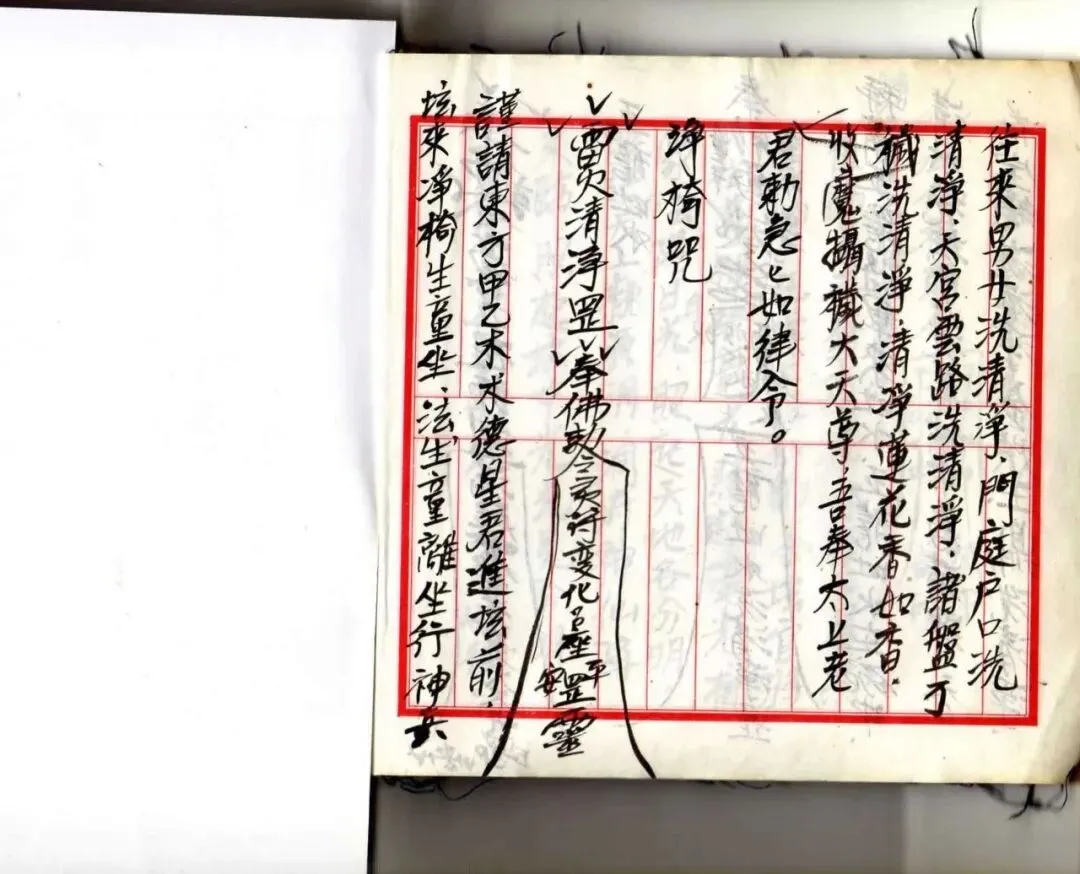 往來男女洗清淨、門庭户口洗
清淨、天宮雲路洗清淨、諸盤丁
穢洗清淨、清淨蓮花香如香、
收魔攝穢大天尊、吾奉太上老
君勅急々如律令。
淨椅咒
清淨罡奉佛敕令 符变化 座罡靈
安 平
謹請東方甲乙木 木德星君進坛前、
坛來净椅生童坐、法生童離坐行神兵